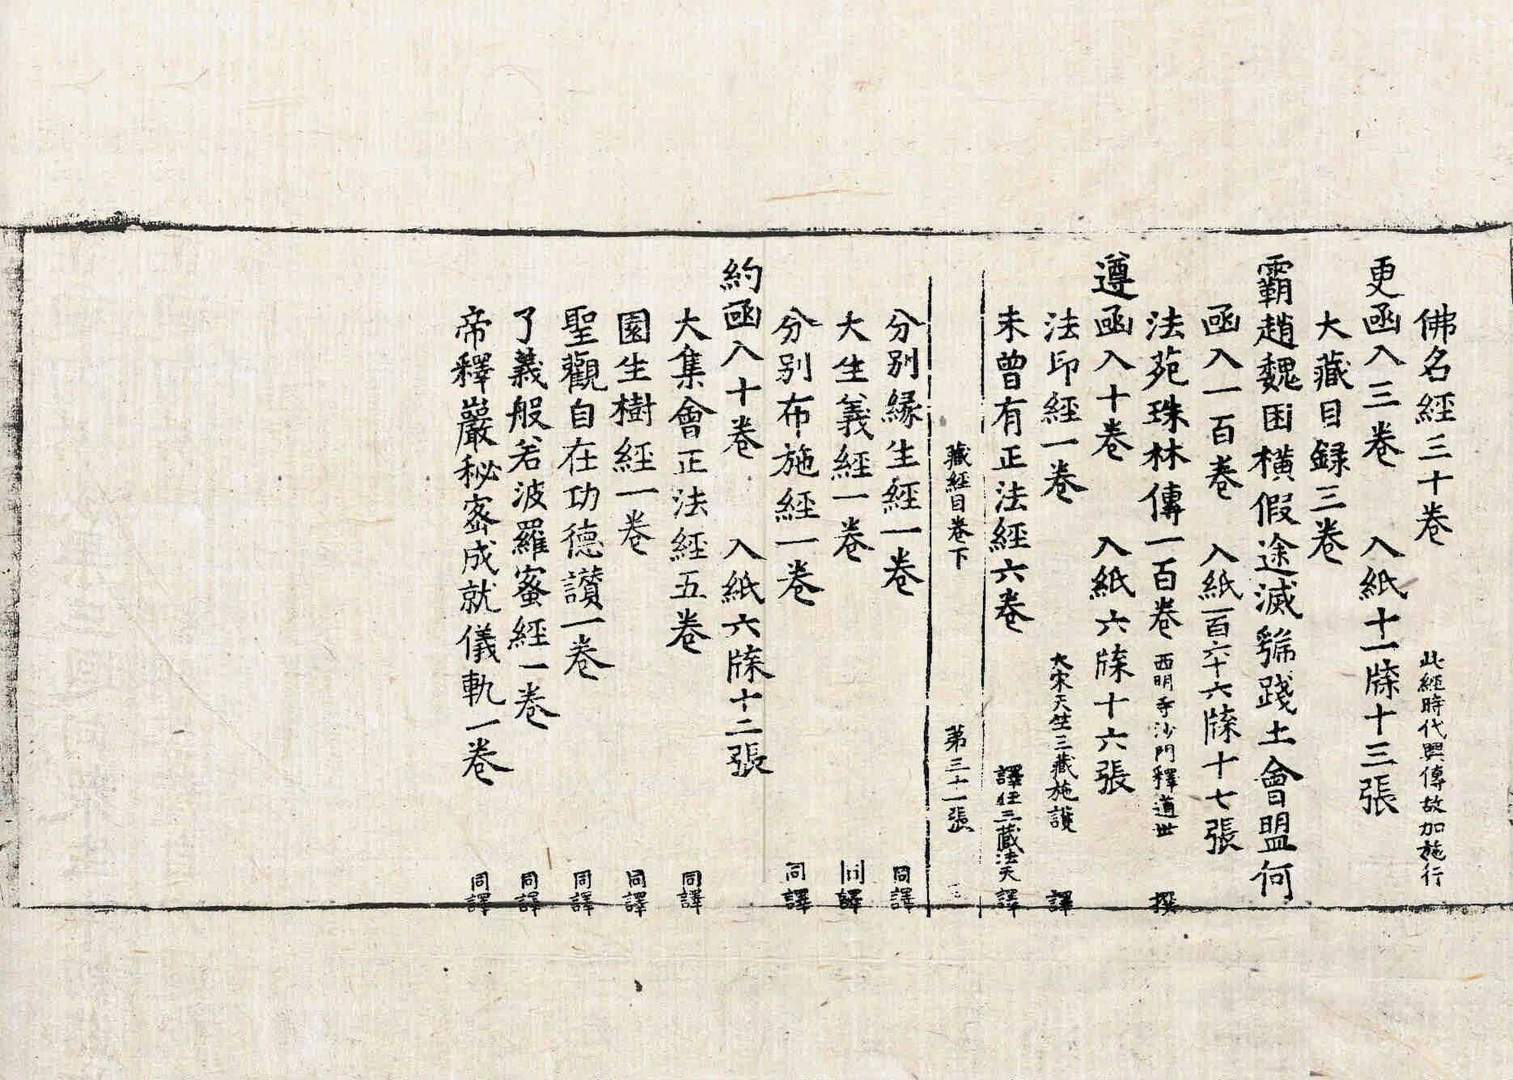 佛名經三十卷 此經時代興傳故加施行
更函入三卷 入紙十一牒十三張
大藏目録三卷
霸趙魏困橫假途滅虢踐土會盟何
函入一百卷 入紙一百六十六牒十七張
法苑珠林傳一百卷 西明寺沙門釋道世 撰
遵函入十卷 入紙六牒十六張
法印經一卷 大宋天竺三藏施護 譯
未曾有正法經六卷 譯經三藏法天譯
藏經目卷下 第三十一張
分別緣生經一卷 同譯
大生義經一卷 同譯
分別布施經一卷 同譯
約函入十卷 入紙六牒十二張
大集會正法經五卷 同譯
園生樹經一卷 同譯
聖觀自在功德讚一卷 同譯
了義般若波羅蜜經一卷 同譯
帝釋巖秘密成就儀軌一卷 同譯